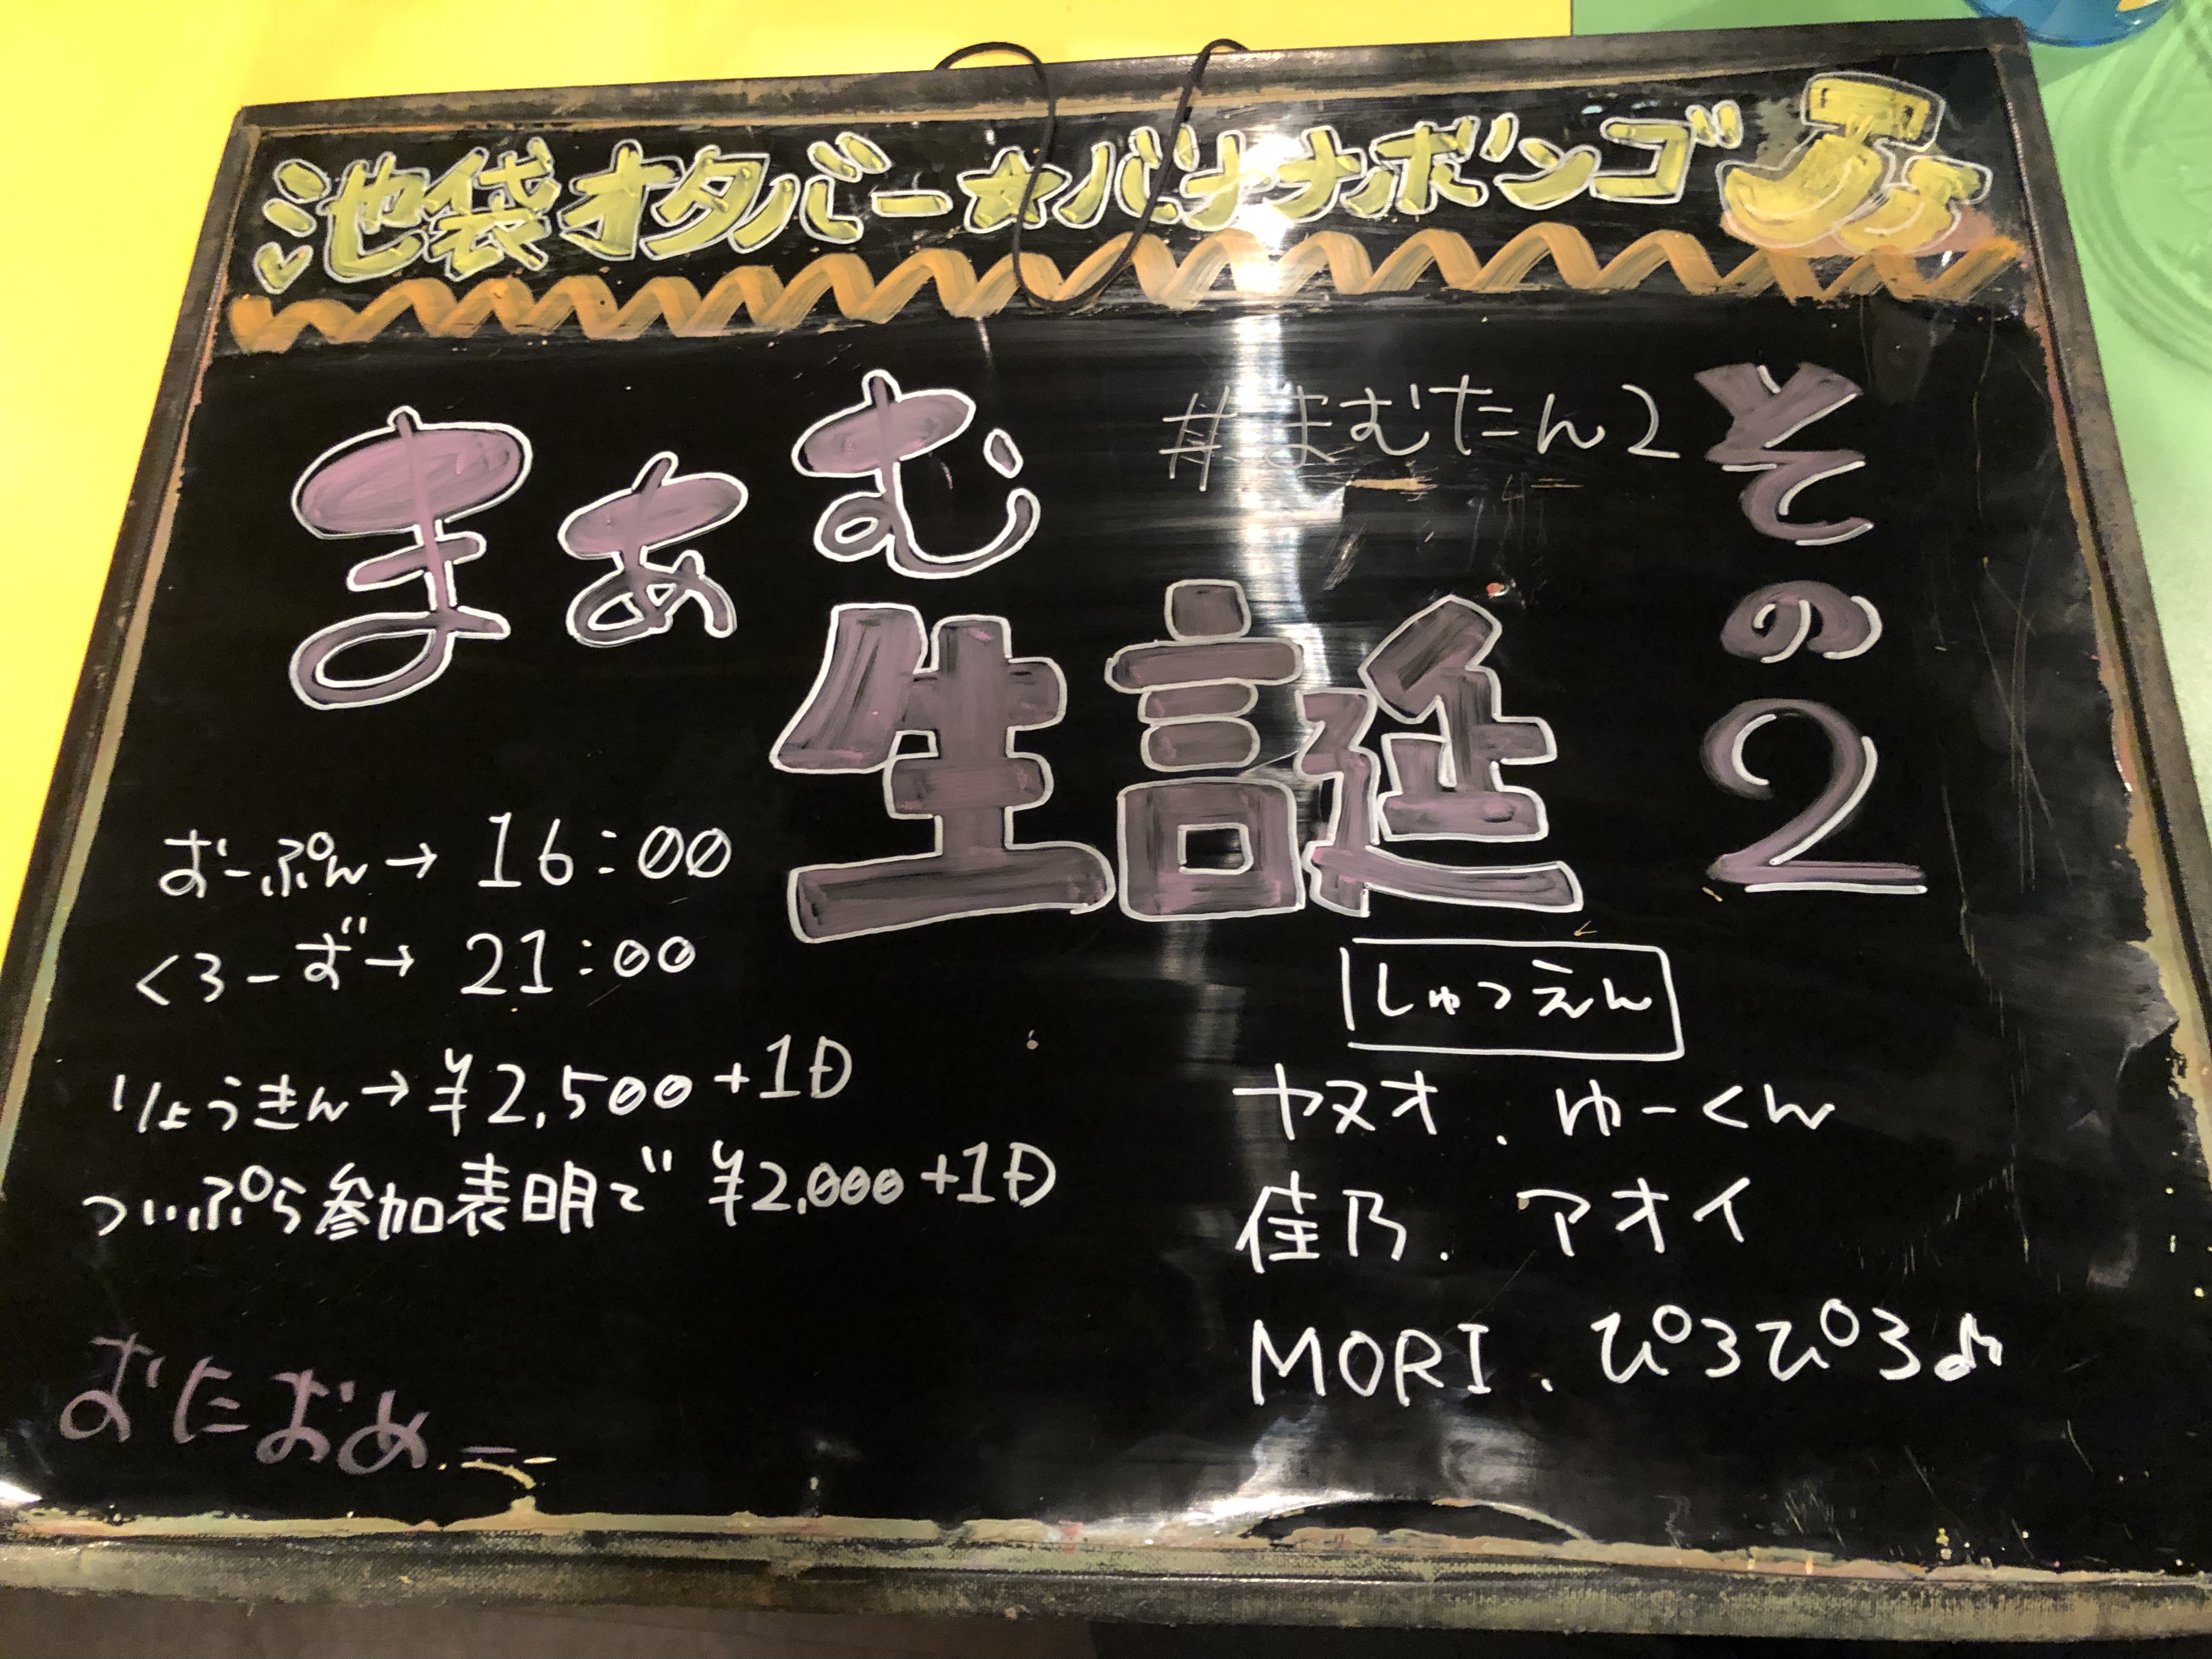 池袋オタバー☆バナナボンゴ
まぁむ
生誕
その2
#まむたん2
おーぷん→16:00
くろーず→21:00
りょうきん→¥2,500+1D
ついぷら参加表明で¥2,000+1D
しゅつえん
ヤヌオ.ゆーくん
佳乃.アオイ
MORI.ぴろぴろ♪
おたおめ